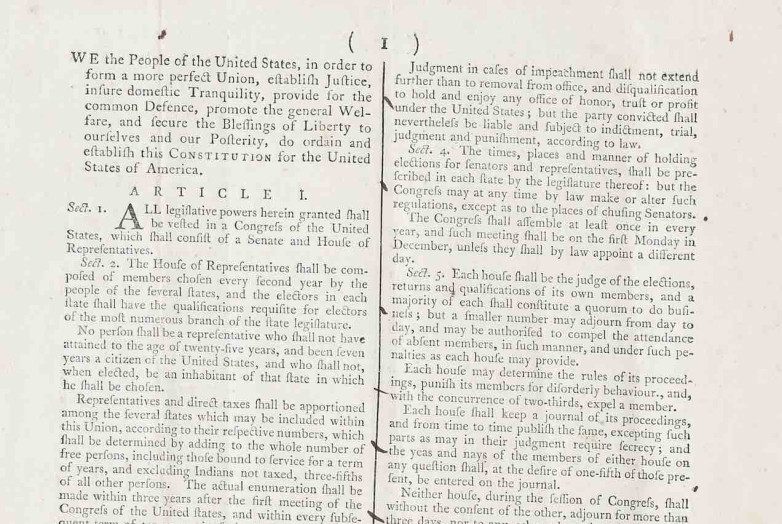 ( 1 )
WE the People of the United States, in order to
form a more perfect Union, eſtabliſh Juſtice,
inſure domeſtic Tranquility, provide for the
common Defence, promote the general Wel-
fare, and ſecure the Bleſſings of Liberty to
ourſelves and our Poſterity, do ordain and
eſtabliſh this CONSTITUTION for the United
States of America.
ARTICLE I.
Sect. 1. ALL legiſlative powers herein granted ſhall
be veſted in a Congreſs of the United
States, which ſhall conſiſt of a Senate and Houſe of
Repreſentatives.
Sect. 2. The Houſe of Repreſentatives ſhall be com-
poſed of members choſen every ſecond year by the
people of the ſeveral ſtates, and the electors in each
ſtate ſhall have the qualifications requiſite for electors
of the moſt numerous branch of the ſtate legiſlature.
No perſon ſhall be a repreſentative who ſhall not have
attained to the age of twenty-five years, and been ſeven
years a citizen of the United States, and who ſhall not,
when elected, be an inhabitant of that ſtate in which
he ſhall be choſen.
Repreſentatives and direct taxes ſhall be apportioned
among the ſeveral ſtates which may be included within
this Union, according to their reſpective numbers, which
ſhall be determined by adding to the whole number of
free perſons, including thoſe bound to ſervice for a term
of years, and excluding Indians not taxed, three-fifths
of all other perſons. The actual enumeration ſhall be
made within three years after the firſt meeting of the
Congreſs of the United ſtates, and within every ſubſe-
quent term of
Judgment in caſes of impeachment ſhall not extend
further than to removal from office, and diſqualification
to hold and enjoy any office of honor, truſt or profit
under the United States; but the party convicted ſhall
nevertheleſs be liable and ſubject to indictment, trial,
judgment and puniſhment, according to law.
Sect. 4. The times, places and manner of holding
elections for ſenators and repreſentatives, ſhall be pre-
ſcribed in each ſtate by the legiſlature thereof: but the
Congreſs may at any time by law make or alter ſuch
regulations, except as to the places of chuſing Senators.
The Congreſs ſhall aſſemble at leaſt once in every
year, and ſuch meeting ſhall be on the firſt Monday in
December, unleſs they ſhall by law appoint a different
day.
Sect. 5. Each houſe ſhall be the judge of the elections,
returns and qualifications of its own members, and a
majority of each ſhall conſtitute a quorum to do buſi-
neſs; but a ſmaller number may adjourn from day to
day, and may be authoriſed to compel the attendance
of abſent members, in ſuch manner, and under ſuch pe-
nalties as each houſe may provide.
Each houſe may determine the rules of its proceed-
ings, puniſh its members for diſorderly behaviour, and,
with the concurrence of two-thirds, expel a member.
Each houſe ſhall keep a journal of its proceedings,
and from time to time publiſh the ſame, excepting ſuch
parts as may in their judgment require ſecrecy; and
the yeas and nays of the members of either houſe on
any queſtion ſhall, at the deſire of one-fifth of thoſe pre-
ſent, be entered on the journal.
Neither houſe, during the ſeſſion of Congreſs, ſhall
without the conſent of the other, adjourn for more than
three days, nor to any